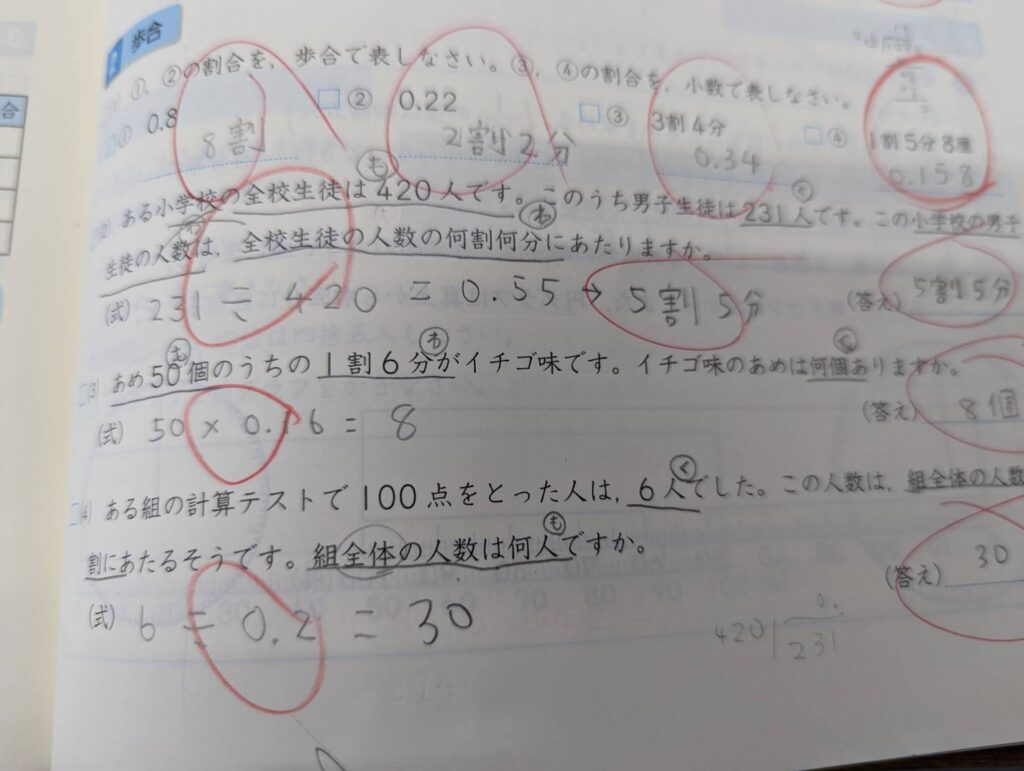 歩合
①,②の割合を,歩合で表しなさい。③,④の割合を,小数で表しなさい。
① 0.8 ② 0.22 ③ 3割4分 ④ 1割5分8厘
8割 2割2分 0.34 0.158
も く
ある小学校の全校生徒は420人です。このうち男子生徒は231人です。この小学校の男子
わ
生徒の人数は,全校生徒の人数の何割何分にあたりますか。
(式) 231÷420=0.55→5割5分 (答え) 5割5分
も わ く
(3) あめ50個のうちの1割6分がイチゴ味です。イチゴ味のあめは何個ありますか。
(式) 50×0.16=8 (答え) 8個
く
(4) ある組の計算テストで100点をとった人は,6人でした。この人数は,組全体の人数
も
割にあたるそうです。組全体の人数は何人ですか。
(式) 6÷0.2=30 (答え) 30
420 231